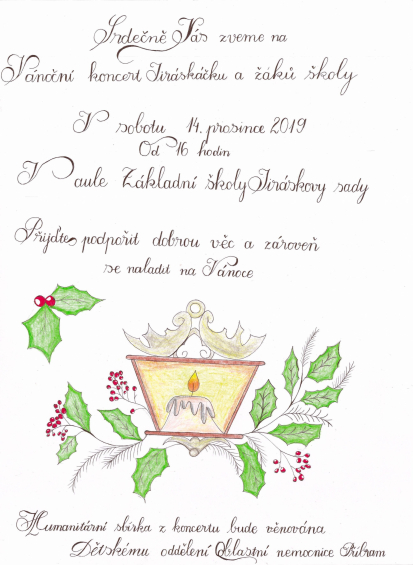 Srdečně Vás zveme na
Vánoční koncert Jiráskáčku a žáků školy
V sobotu 14. prosince 2019
Od 16 hodin
V aule Základní školy Jiráskovy sady
Přijďte podpořit dobrou věc a zároveň
se naladit na Vánoce
Humanitární sbírka z koncertu bude věnována
Dětskému oddělení Oblastní nemocnice Příbram